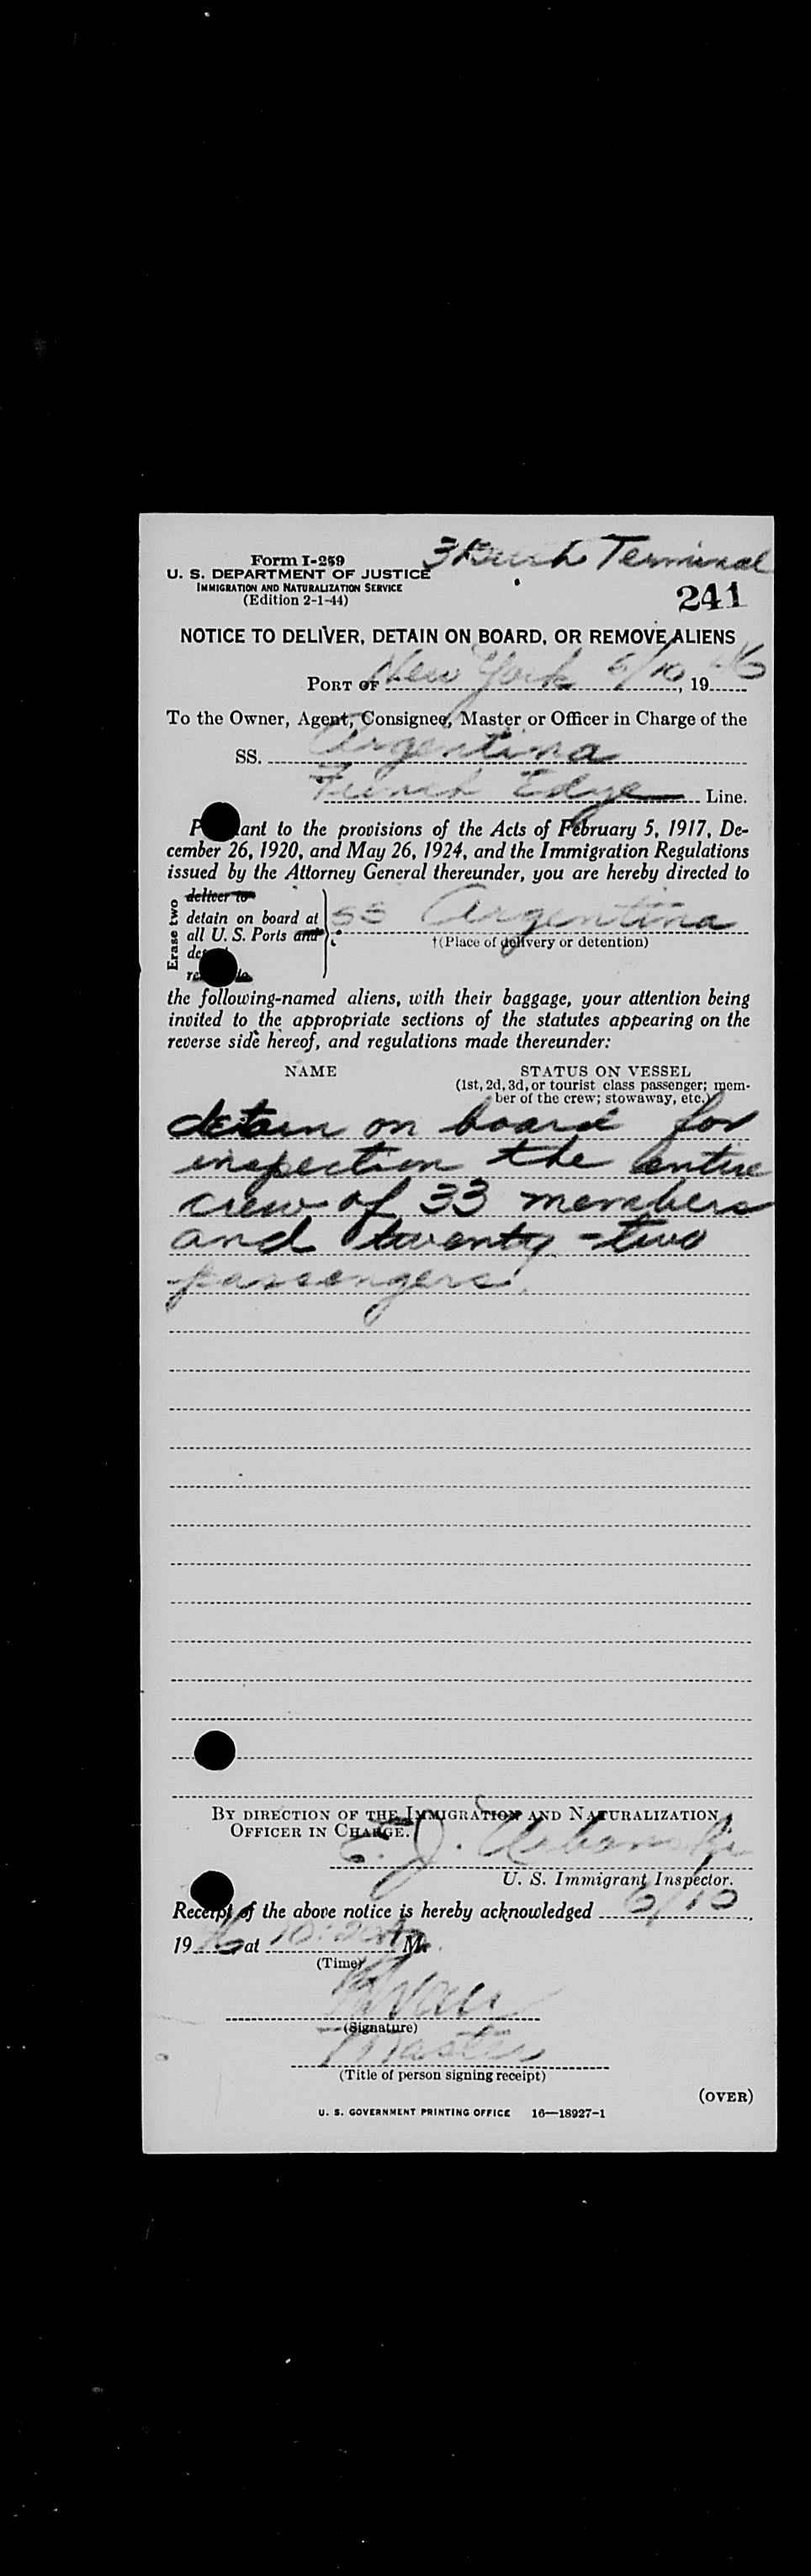 3 Terminal
Form I-259
U. S. DEPARTMENT OF JUSTICE
IMMIGRATION AND NATURALIZATION SERVICE
(Edition 2-1-44)
241
NOTICE TO DELIVER, DETAIN ON BOARD, OR REMOVE ALIENS
PORT OF New York 6/10, 1946
To the Owner, Agent, Consignee, Master or Officer in Charge of the
SS. Argentina
French Edye Line.
to the provisions of the Acts of February 5, 1917, De-
cember 26, 1920, and May 26, 1924, and the Immigration Regulations
issued by the Attorney General thereunder, you are hereby directed to
Erase two
deliver to
detain on board at
all U. S. Ports and
SS Argentina
†(Place of delivery or detention)
the following-named aliens, with their baggage, your attention being
invited to the appropriate sections of the statutes appearing on the
reverse side hereof, and regulations made thereunder:
NAME STATUS ON VESSEL
(1st, 2d, 3d, or tourist class passenger; mem-
ber of the crew; stowaway, etc.)
detain on board for
inspection the entire
crew of 33 members
and twenty-two
passengers.
BY DIRECTION OF THE IMMIGRATION AND NATURALIZATION
OFFICER IN CHARGE.
E. J. Urbanski
U. S. Immigrant Inspector.
Receipt of the above notice is hereby acknowledged 6/10,
1946 at 10:20 A M.
(Time)
(Signature)
Master
(Title of person signing receipt)
(OVER)
U. S. GOVERNMENT PRINTING OFFICE 16—18927-1